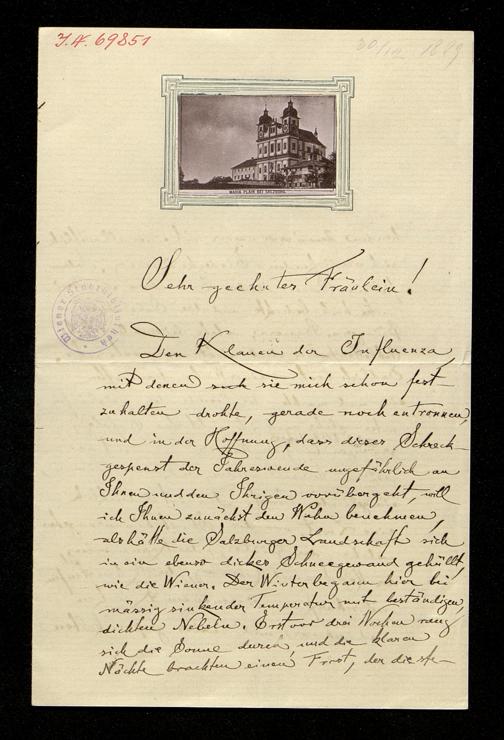 I.N. 69851
30/12. 1889
MARIA PLAIN BEI SALZBURG.
Wiener Stadtbibliothek
Sehr geehrtes Fräulein!
Den Klauen der Influenza,
mit denen sich sie mich schon fest-
zuhalten drohte, gerade noch entronnen,
und in der Hoffnung, dass dieses Schreck-
gespenst der Jahreswende ungefährlich an
Ihnen und den Ihrigen vorübergeht, will
ich Ihnen zunächst den Wahn benehmen,
als hätte die Salzburger Landschaft sich
in ein ebenso dickes Schneegewand gehüllt,
wie die Wiener. Der Winter begann hier bei
mässig sinkender Temperatur mit beständigen,
dichten Nebeln. Erst vor drei Wochen rang
sich die Sonne durch, und die klaren
Nächte brachten einen Frost, der die ste-